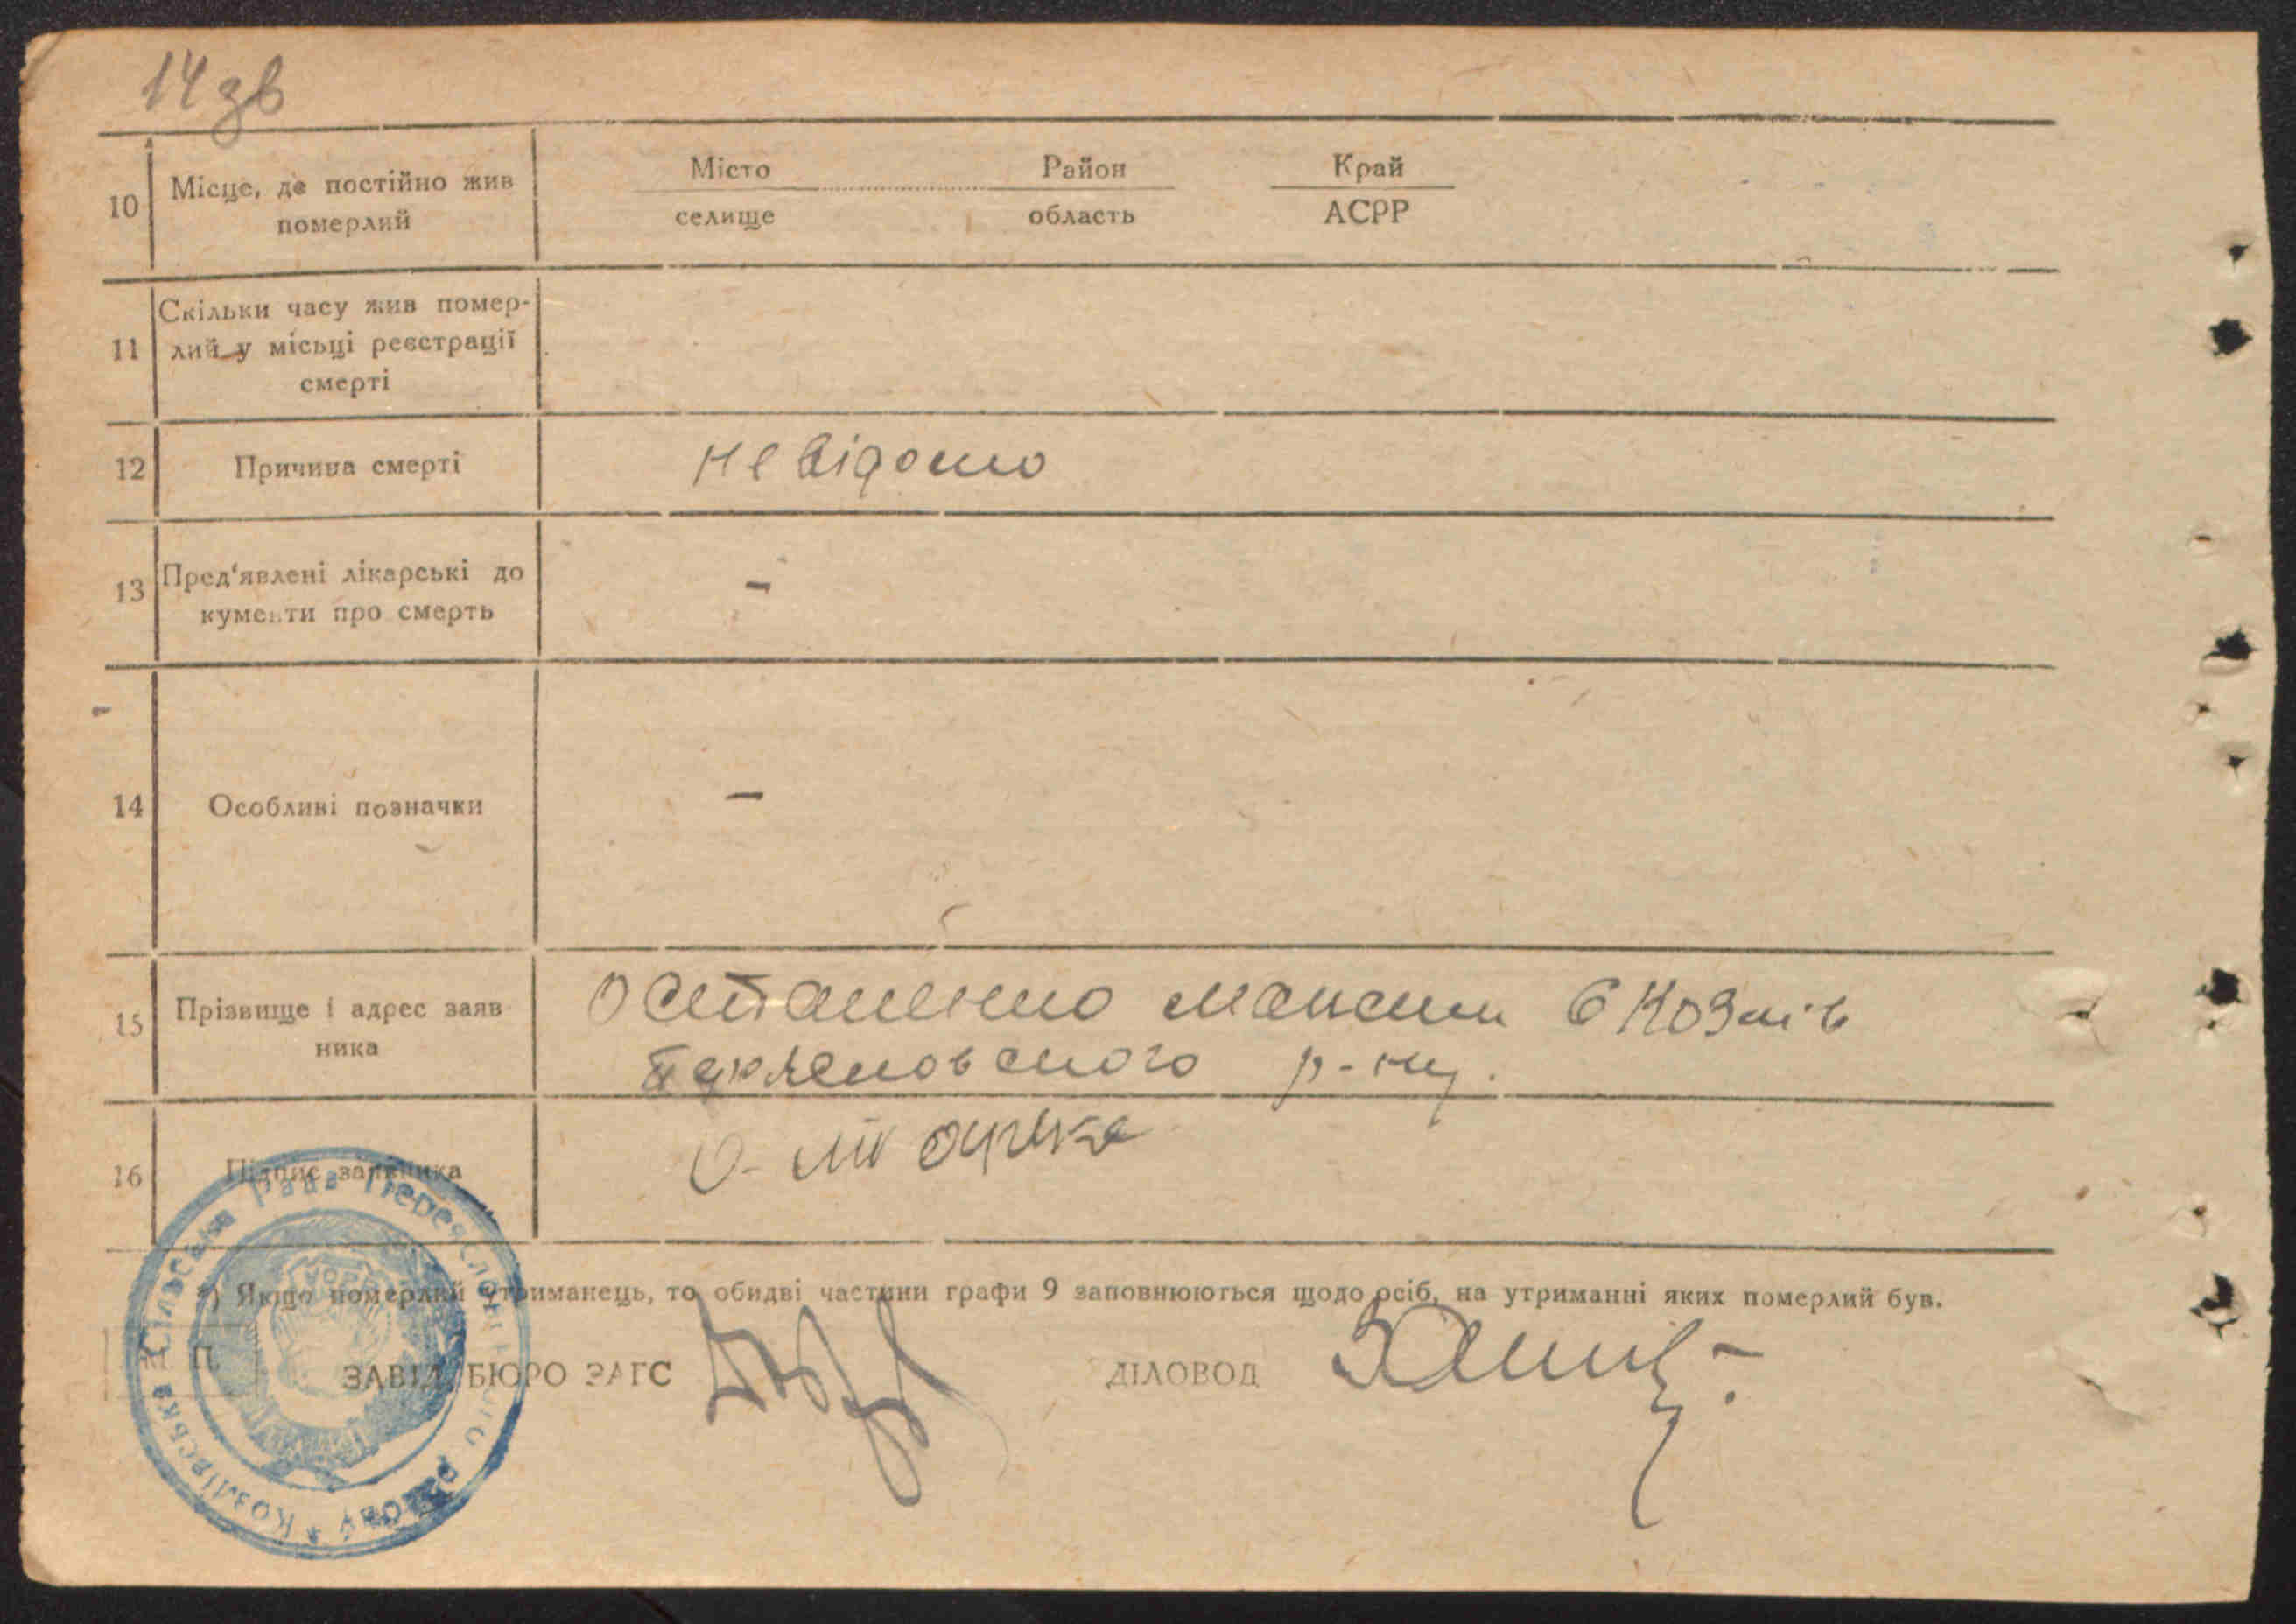 14 зв
10 Місце, де постійно жив померлий
Місто Район Край
селище область АСРР
11 Скільки часу жив помер-
лий у місьці реєстрації
смерті
12 Причина смерті невідомо
13 Пред'явлені лікарські до
кументи про смерть -
14 Особливі позначки -
15 Прізвище і адрес заяв
ника
Остапенко Максим с Козлів
р-ну.
16 Підпис заявника
*) Якщо померлий утриманець, то обидві частини графи 9 заповнюються щодо осіб, на утриманні яких померлий був.
М П
ЗАВІД. БЮРО ЗАГС ДІЛОВОД
Козлівська Сільська Рада Переяславського району *